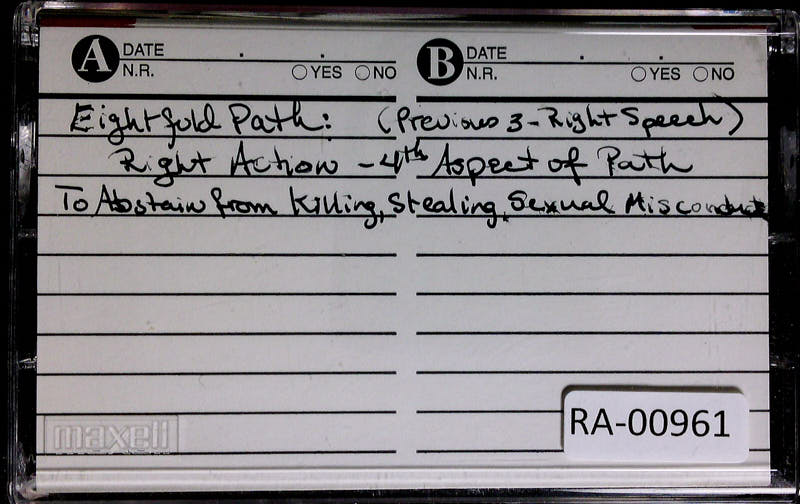 A DATE . . B DATE . .
N.R. YES NO N.R. YES NO
Eightfold Path: (Previous 3 - Right Speech)
Right Action - 4th Aspect of Path
To Abstain from Killing, Stealing, Sexual Misconduct
maxell
RA-00961